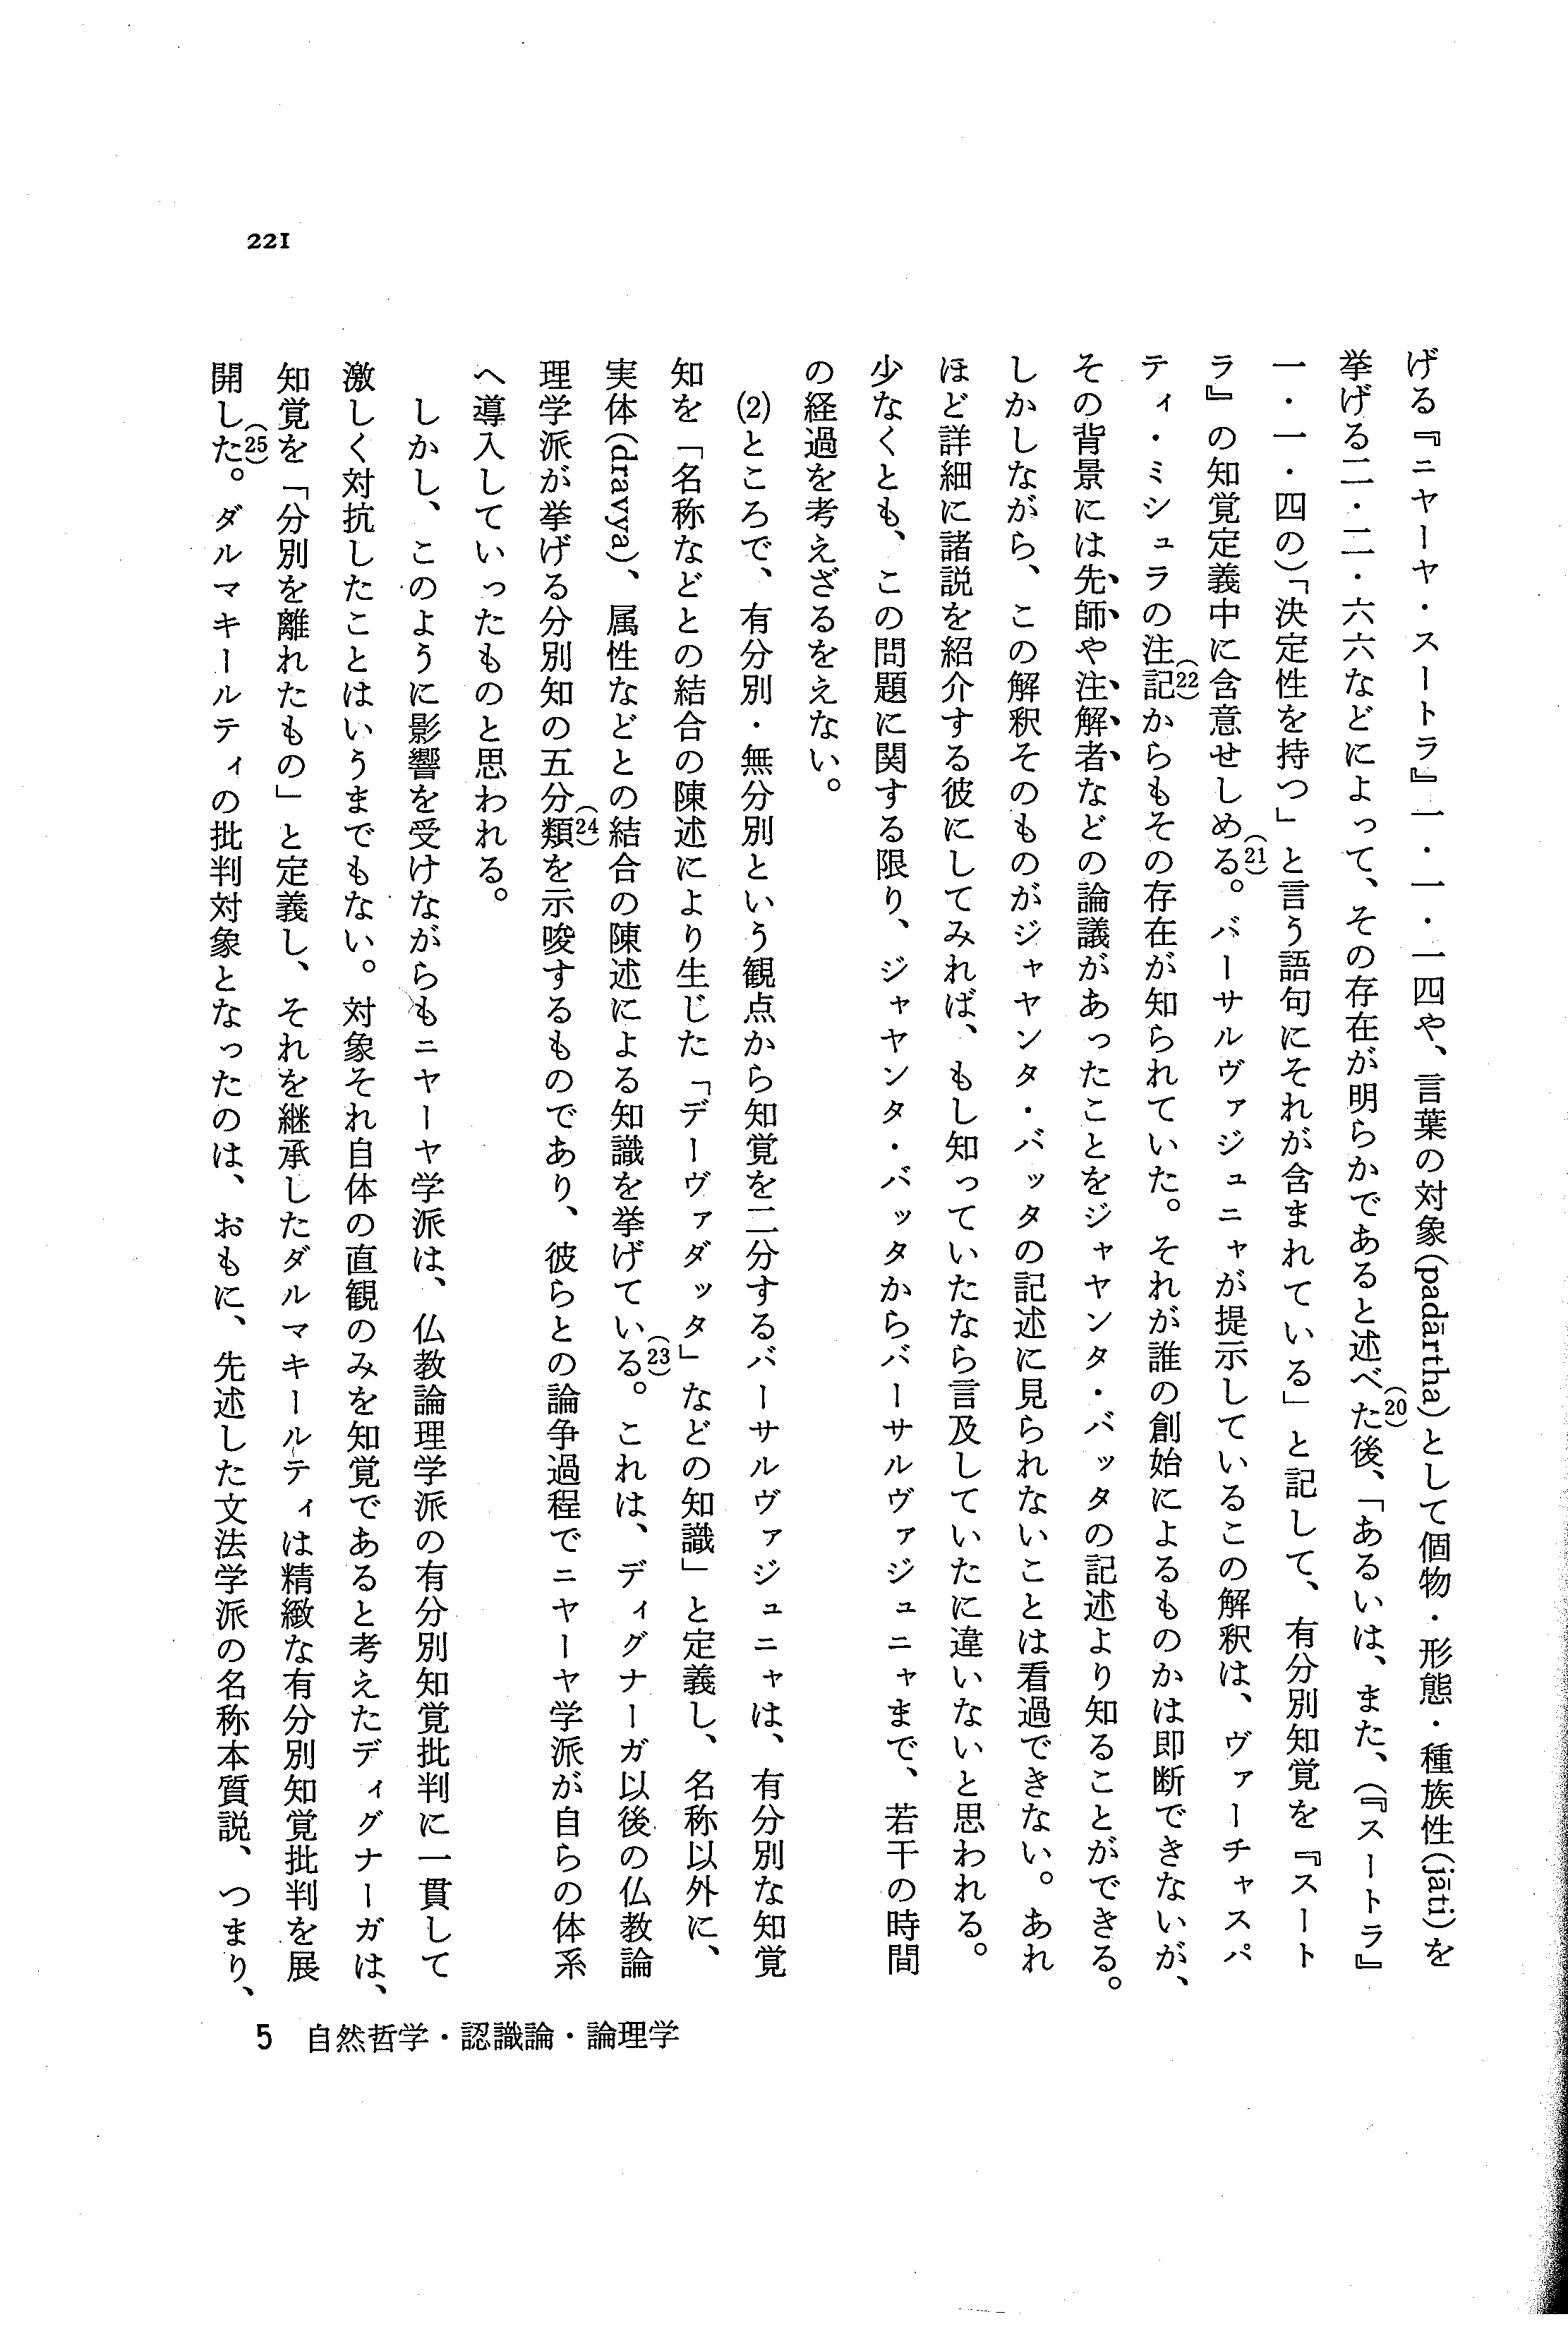 221
げる『ニヤーヤ・スートラ』一・一・一四や、言葉の対象(padārtha)として個物・形態・種族性(jāti)を
挙げる二・二・六六などによって、その存在が明らかであると述べた(20)後、「あるいは、また、(『スートラ』
一・一・四の)「決定性を持つ」と言う語句にそれが含まれている」と記して、有分別知覚を『スート
ラ』の知覚定義中に含意せしめる(21)。バーサルヴァジュニャが提示しているこの解釈は、ヴァーチャスパ
ティ・ミシュラの注記(22)からもその存在が知られていた。それが誰の創始によるものかは即断できないが、
その背景には先師や注解者などの論議があったことをジャヤンタ・バッタの記述より知ることができる。
しかしながら、この解釈そのものがジャヤンタ・バッタの記述に見られないことは看過できない。あれ
ほど詳細に諸説を紹介する彼にしてみれば、もし知っていたなら言及していたに違いないと思われる。
少なくとも、この問題に関する限り、ジャヤンタ・バッタからバーサルヴァジュニャまで、若干の時間
の経過を考えざるをえない。
(2)ところで、有分別・無分別という観点から知覚を二分するバーサルヴァジュニャは、有分別な知覚
知を「名称などとの結合の陳述により生じた「デーヴァダッタ」などの知識」と定義し、名称以外に、
実体(dravya)、属性などとの結合の陳述による知識を挙げている(23)。これは、ディグナーガ以後の仏教論
理学派が挙げる分別知の五分類(24)を示唆するものであり、彼らとの論争過程でニヤーヤ学派が自らの体系
へ導入していったものと思われる。
しかし、このように影響を受けながらもニヤーヤ学派は、仏教論理学派の有分別知覚批判に一貫して
激しく対抗したことはいうまでもない。対象それ自体の直観のみを知覚であると考えたディグナーガは、
知覚を「分別を離れたもの」と定義し、それを継承したダルマキールティは精緻な有分別知覚批判を展
開した(25)。ダルマキールティの批判対象となったのは、おもに、先述した文法学派の名称本質説、つまり、
5 自然哲学・認識論・論理学